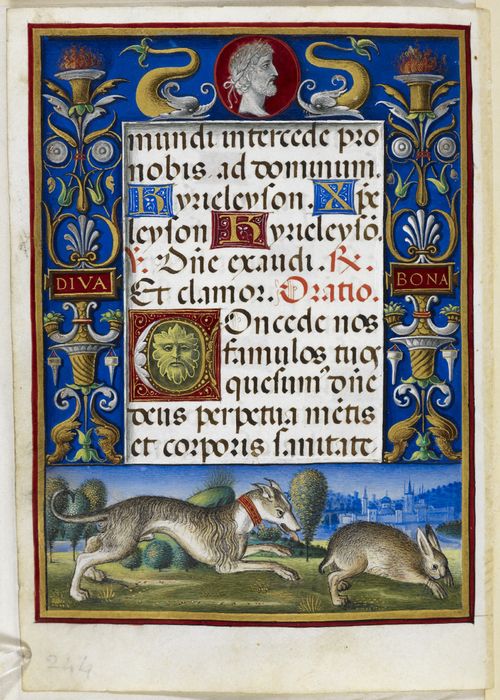 mundi intercede pro
nobis ad dominum.
Kyrieleyson. Xp̄e
eyson Kyrieleysō.
V. Dn̄e exaudi. R.
Et clamor. Oratio.
DIVA
BONA
Concede nos
famulos tuos
quesum' dn̄e
deus perpetua mētis
et corporis sanitate
244